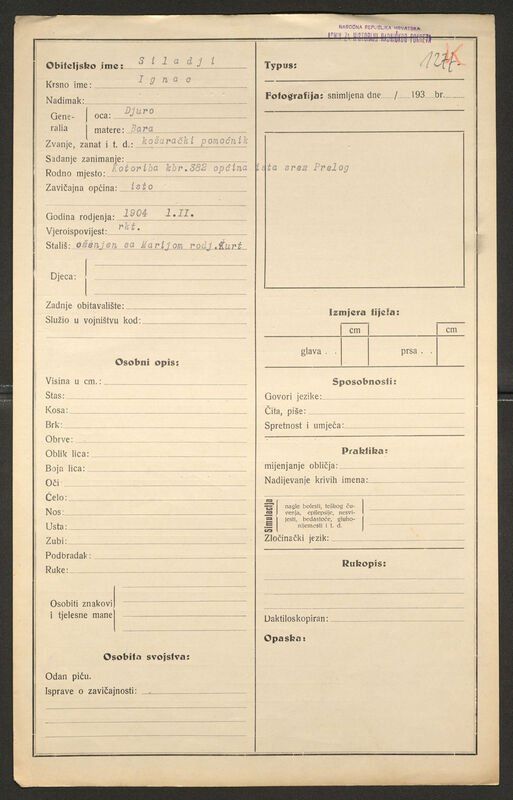 NARODNA REPUBLIKA HRVATSKA
ARHIV ZA HISTORIJU RADNIČKOG POKRETA
1277-K
Obiteljsko ime: Siladji
Krsno ime: Ignac
Nadimak:
Generalia
oca: Djuro
matere: Bara
Zvanje, zanat i t. d.: košarački pomoćnik
Sadanje zanimanje:
Rodno mjesto: Kotoriba kbr.382 općina ista srez Prelog
Zavičajna općina: isto
Godina rodjenja: 1904 1.II.
Vjeroispovijest: rkt.
Stališ: oženjen sa Marijom rodj.Kurt
Djeca:
Zadnje obitavalište:
Služio u vojništvu kod:
Osobni opis:
Visina u cm.:
Stas:
Kosa:
Brk:
Obrve:
Oblik lica:
Boja lica:
Oči
Čelo:
Nos:
Usta:
Zubi:
Podbradak:
Ruke:
Osobiti znakovi
i tjelesne mane
Osobita svojstva:
Odan piću.
Isprave o zavičajnosti:
Typus:
Fotografija: snimljena dne / 193 br.
Izmjera tijela:
cm cm
glava . . prsa . .
Sposobnosti:
Govori jezike:
Čita, piše:
Spretnost i umjeća:
Praktika:
mijenjanje obličja:
Nadijevanje krivih imena:
Simulacija
nagle bolesti, teškog ču-
venja, epilepsije, nesvi-
jesti, bedastoće, gluho-
nijemosti i t. d.
Zločinački jezik:
Rukopis:
Daktiloskopiran:
Opaska: